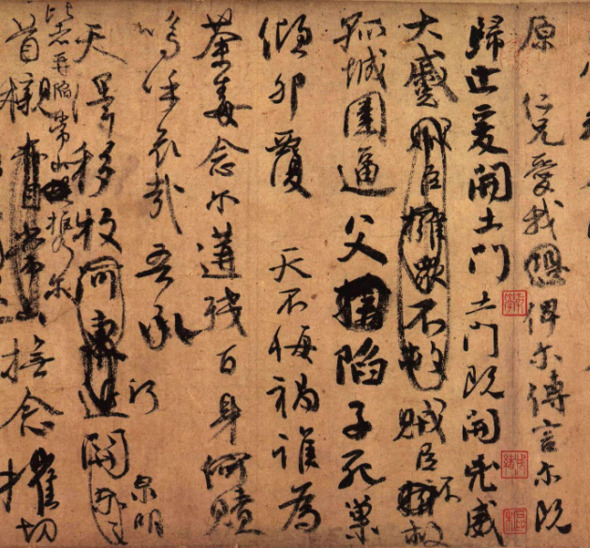 原 仁兄愛我恐俾尓傳言尓既
歸止爰開土門土門既開兇威
大蹙賊臣擁衆不救賊臣不擁救
孤城圍逼父擒陷子死巢
傾卵覆 天不悔禍誰為
荼毒念尓遘殘百身何贖
嗚呼哀哉吾承
天澤移牧河東近河關 泉明
比者再陷常山尔
首櫬常山撫念摧切